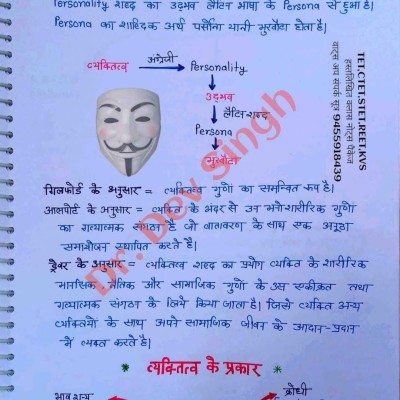 Personality शब्द का उद्भव लैटिन भाषा के Persona से हुआ है।
Persona का शाब्दिक अर्थ पर्सोना यानी मुखौटा होता है।
व्यक्तित्व अंग्रेजी Personality
उद्भव
लैटिन शब्द
Persona
मुखौटा
TET,CTET,STET,REET,KVS
हस्तलिखित क्लास नोट्स पैकेज
वाट्स अप संपर्क सूत्र 9455918439
Dr. Dev Singh
गिलफोर्ड के अनुसार = व्यक्तित्व गुणों का समन्वित रूप है।
आलपोर्ट के अनुसार = व्यक्ति के अंदर से उन मनोशारीरिक गुणों
का गत्यात्मक संगठन है जो वातावरण के साथ एक अनूठा
समायोजन स्थापित करते है।
ड्रेवर के अनुसार = व्यक्तित्व शब्द का प्रयोग व्यक्ति के शारीरिक
मानसिक नैतिक और सामाजिक गुणों के उस एकीकृत तथा
गत्यात्मक संगठन के लिये किया जाता है। जिसे व्यक्ति अन्य
व्यक्तियों के साथ अपने सामाजिक जीवन के आदान-प्रदान
में व्यक्त करते है।
* व्यक्तित्व के प्रकार *
क्रोधी